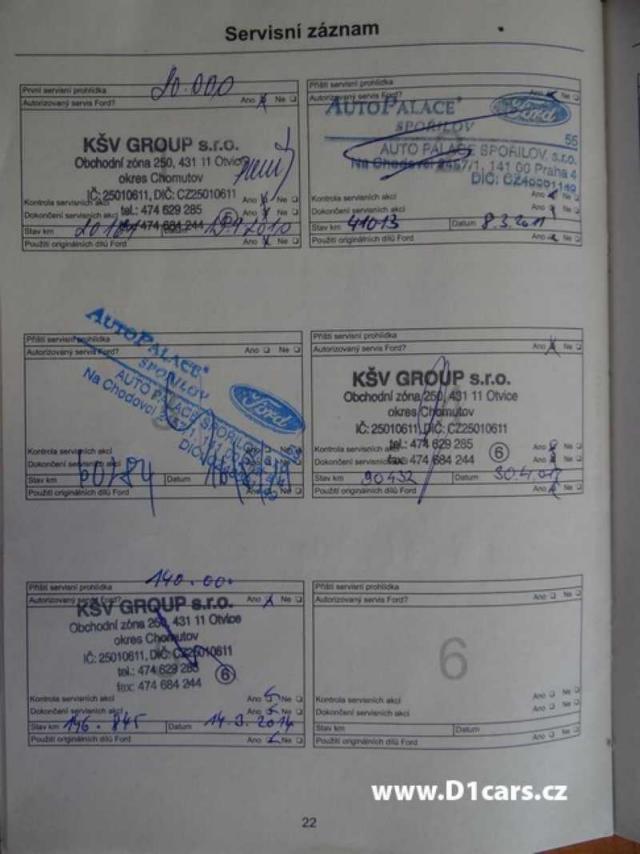 Servisní záznam
20.000
První servisní prohlídka
Autorizovaný servis Ford? Ano Ne
KŠV GROUP s.r.o.
Obchodní zóna 250, 431 11 Otvice
okres Chomutov
IČ: 25010611, DIČ: CZ25010611
Kontrola servisních akcí Ano Ne
tel.: 474 629 285
Dokončení servisních akcí Ano Ne
fax: 474 684 244 6
Stav km 20181
Použití originálních dílů Ford Ano Ne
Příští servisní prohlídka
Autorizovaný servis Ford? Ano Ne
AUTOPALACE
SPOŘILOV
Ford
55
AUTO PALACE SPOŘILOV, s.r.o.
Na Chodovci 2457/1, 141 00 Praha 4
DIČ: CZ49001149
Kontrola servisních akcí Ano Ne
Dokončení servisních akcí Ano Ne
Stav km 41013 Datum 8.3.2011
Použití originálních dílů Ford Ano Ne
Příští servisní prohlídka
Autorizovaný servis Ford? Ano Ne
AUTOPALACE
SPOŘILOV
Ford
AUTO PALACE SPOŘILOV
Na Chodovci
Kontrola servisních akcí
Dokončení servisních akcí
Stav km 60784 Datum
Použití originálních dílů Ford Ano Ne
Příští servisní prohlídka
Autorizovaný servis Ford? Ano Ne
KŠV GROUP s.r.o.
Obchodní zóna 250, 431 11 Otvice
okres Chomutov
IČ: 25010611, DIČ: CZ25010611
Kontrola servisních akcí Ano Ne
tel.: 474 629 285
Dokončení servisních akcí Ano Ne
fax: 474 684 244 6
Stav km 90432 Datum
Použití originálních dílů Ford Ano Ne
140.00
Příští servisní prohlídka
Autorizovaný servis Ford? Ano Ne
KŠV GROUP s.r.o.
Obchodní zóna 250, 431 11 Otvice
okres Chomutov
IČ: 25010611, DIČ: CZ25010611
tel.: 474 629 285
fax: 474 684 244 6
Kontrola servisních akcí Ano Ne
Dokončení servisních akcí Ano Ne
Stav km 146.845 Datum 14.3.2014
Použití originálních dílů Ford Ano Ne
Příští servisní prohlídka
Autorizovaný servis Ford? Ano Ne
6
Kontrola servisních akcí Ano Ne
Dokončení servisních akcí Ano Ne
Stav km Datum
Použití originálních dílů Ford Ano Ne
www.D1cars.cz
22